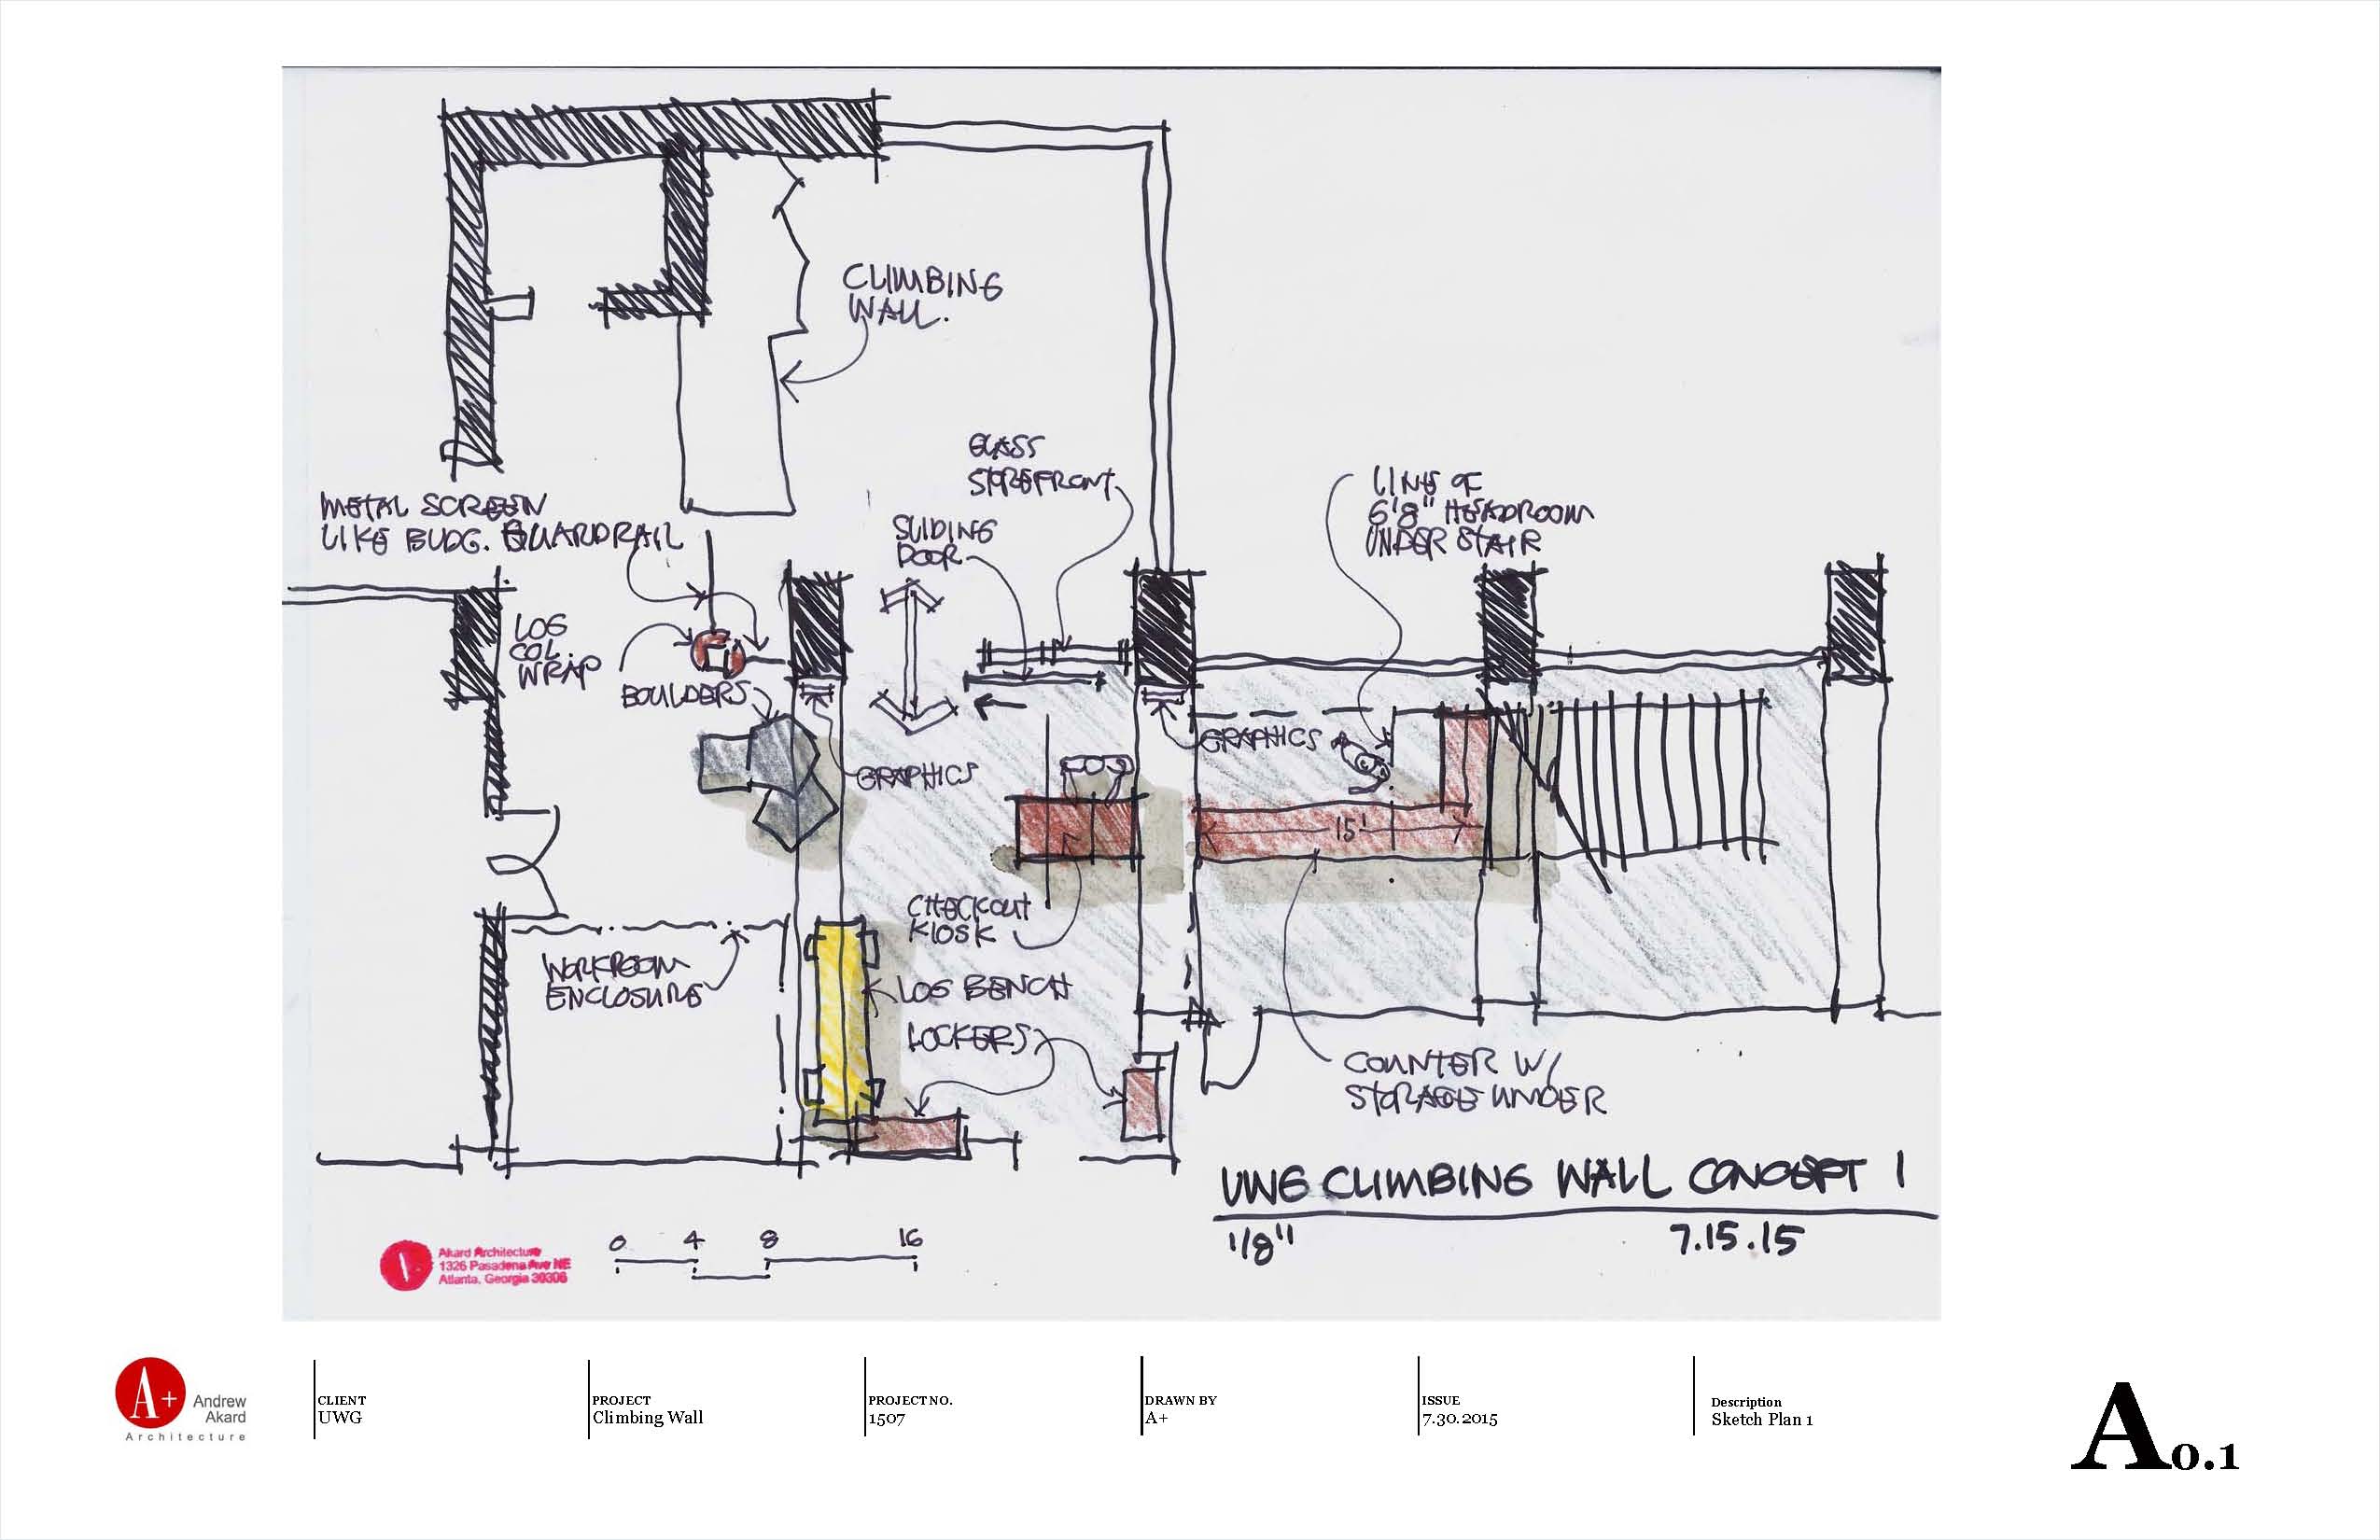 CLIMBING
WALL.
GLASS
STOREFRONT
SLIDING
DOOR
LINE OF
6'8" HEADROOM
UNDER STAIR
METAL SCREEN
LIKE BLDG. GUARDRAIL
LOG
COL.
WRAP
BOULDERS
GRAPHICS
GRAPHICS
15'
CHECKOUT
KIOSK
WORKROOM
ENCLOSURE
LOG BENCH
LOCKERS
COUNTER W/
STORAGE UNDER
UWG CLIMBING WALL CONCEPT 1
1/8"
7.15.15
0 4 8 16
Akard Architecture
1326 Pasadena Ave NE
Atlanta, Georgia 30306
A+
Andrew
Akard
Architecture
CLIENT
UWG
PROJECT
Climbing Wall
PROJECT NO.
1507
DRAWN BY
A+
ISSUE
7.30.2015
Description
Sketch Plan 1
A0.1